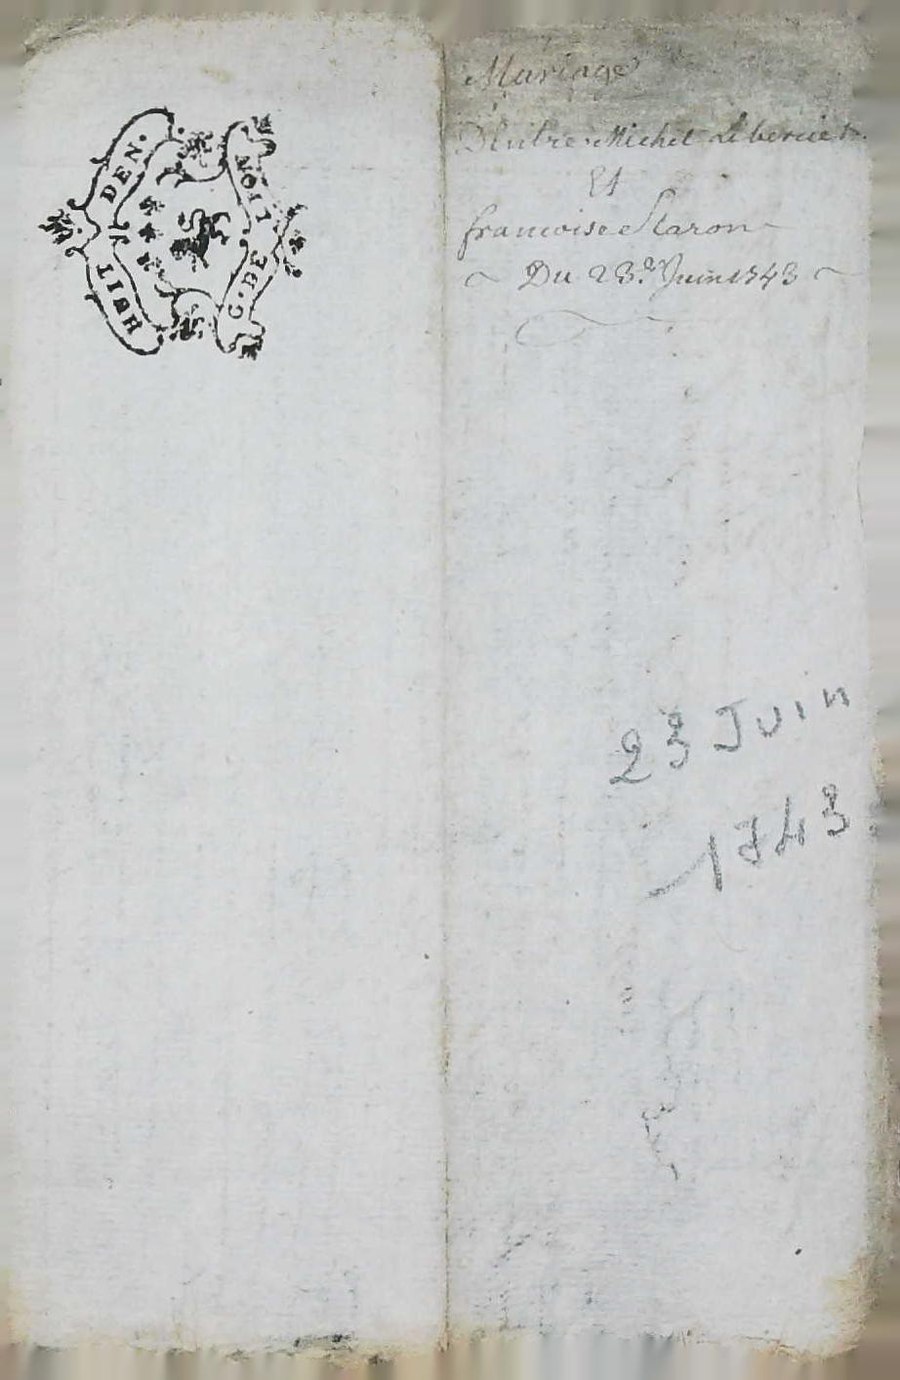 HUIT DEN.
G. DE LION
Mariage
D'Entre Michel Libercier
Et
francoise Staron
Du 23e. Juin 1743
23 Juin
1743